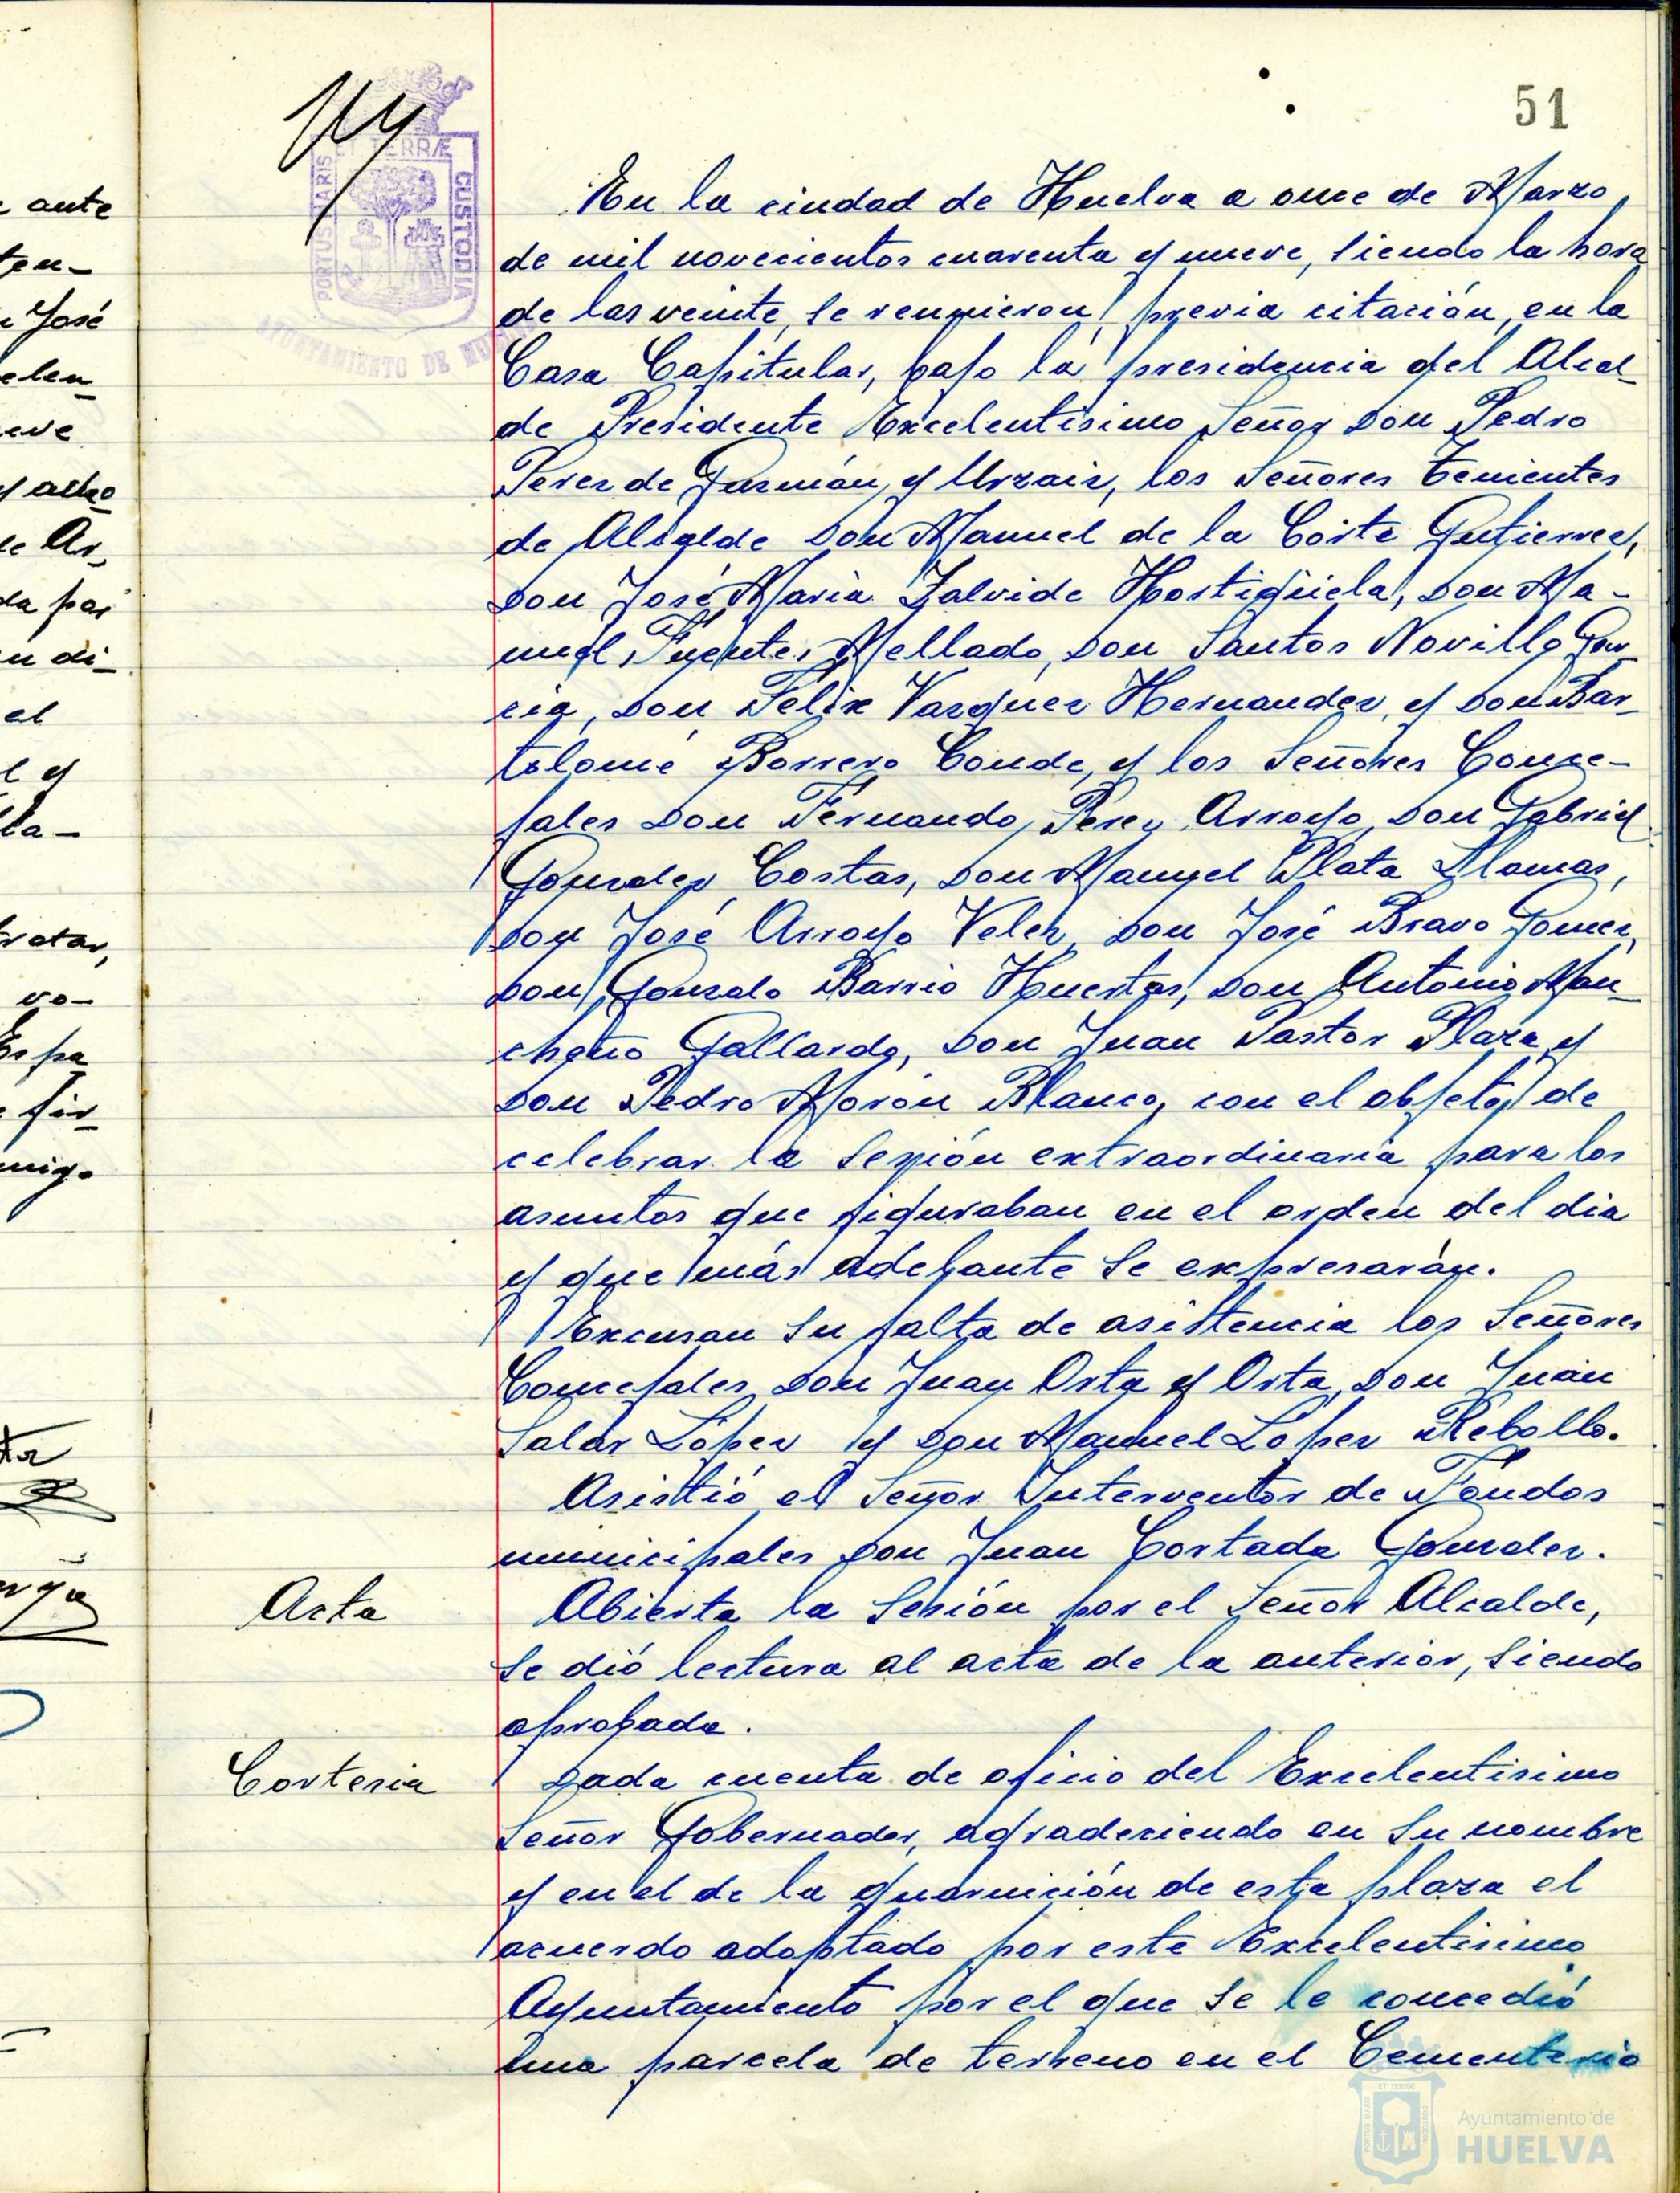 51
En la ciudad de Huelva a once de Marzo
de mil novecientos cuarenta y nueve, siendo la hora
de las veinte, se reunieron, previa citación, en la
Casa Capitular, bajo la presidencia del Alcal-
de Presidente Excelentisimo Señor Don Pedro
Perez de Guzmán y Urzaiz, los Señores Tenientes
de Alcalde Don Manuel de la Corte Gutierrez,
Don José Maria Zalvide Hortigüela, Don Ma-
nuel Fuentes Mellado, Don Santos Novillo Gar-
cia, Don Felix Vazquez Hernandez, y Don Bar-
tolomé Borrero Conde, y los Señores Conce-
jales Don Fernando Perez Arroyo, Don Gabriel
Gonzalez Costas, Don Manuel Plata Llamas,
Don José Arroyo Velez, Don José Bravo Gomez,
Don Gonzalo Barrio Huertas, Don Antonio Man-
cheño Gallardo, Don Juan Pastor Plaza y
Don Pedro Morón Blanco, con el objeto de
celebrar la sesión extraordinaria para los
asuntos que figuraban en el orden del dia
y que más adelante se expresarán.
Excusan su falta de asistencia los Señores
Concejales Don Juan Orta y Orta, Don Juan
Salar López y Don Manuel López Rebollo.
Asistió el Señor Interventor de Fondos
municipales Don Juan Cortada Gonzalez.
Acta
Abierta la Sesión por el Señor Alcalde,
se dió lectura al acta de la anterior, siendo
aprobada.
Cortesia
Dada cuenta de oficio del Excelentisimo
Señor Gobernador, agradeciendo en su nombre
y en el de la guarnición de esta plaza el
acuerdo adoptado por este Excelentisimo
Ayuntamiento por el que se le concedió
una parcela de terreno en el Cementerio
PORTUS MARIS ET TERRÆ CUSTODIA
AYUNTAMIENTO DE HUELVA
ante
José
eve
de Ar-
da por
di-
el
y
la-
Ayuntamiento de
HUELVA